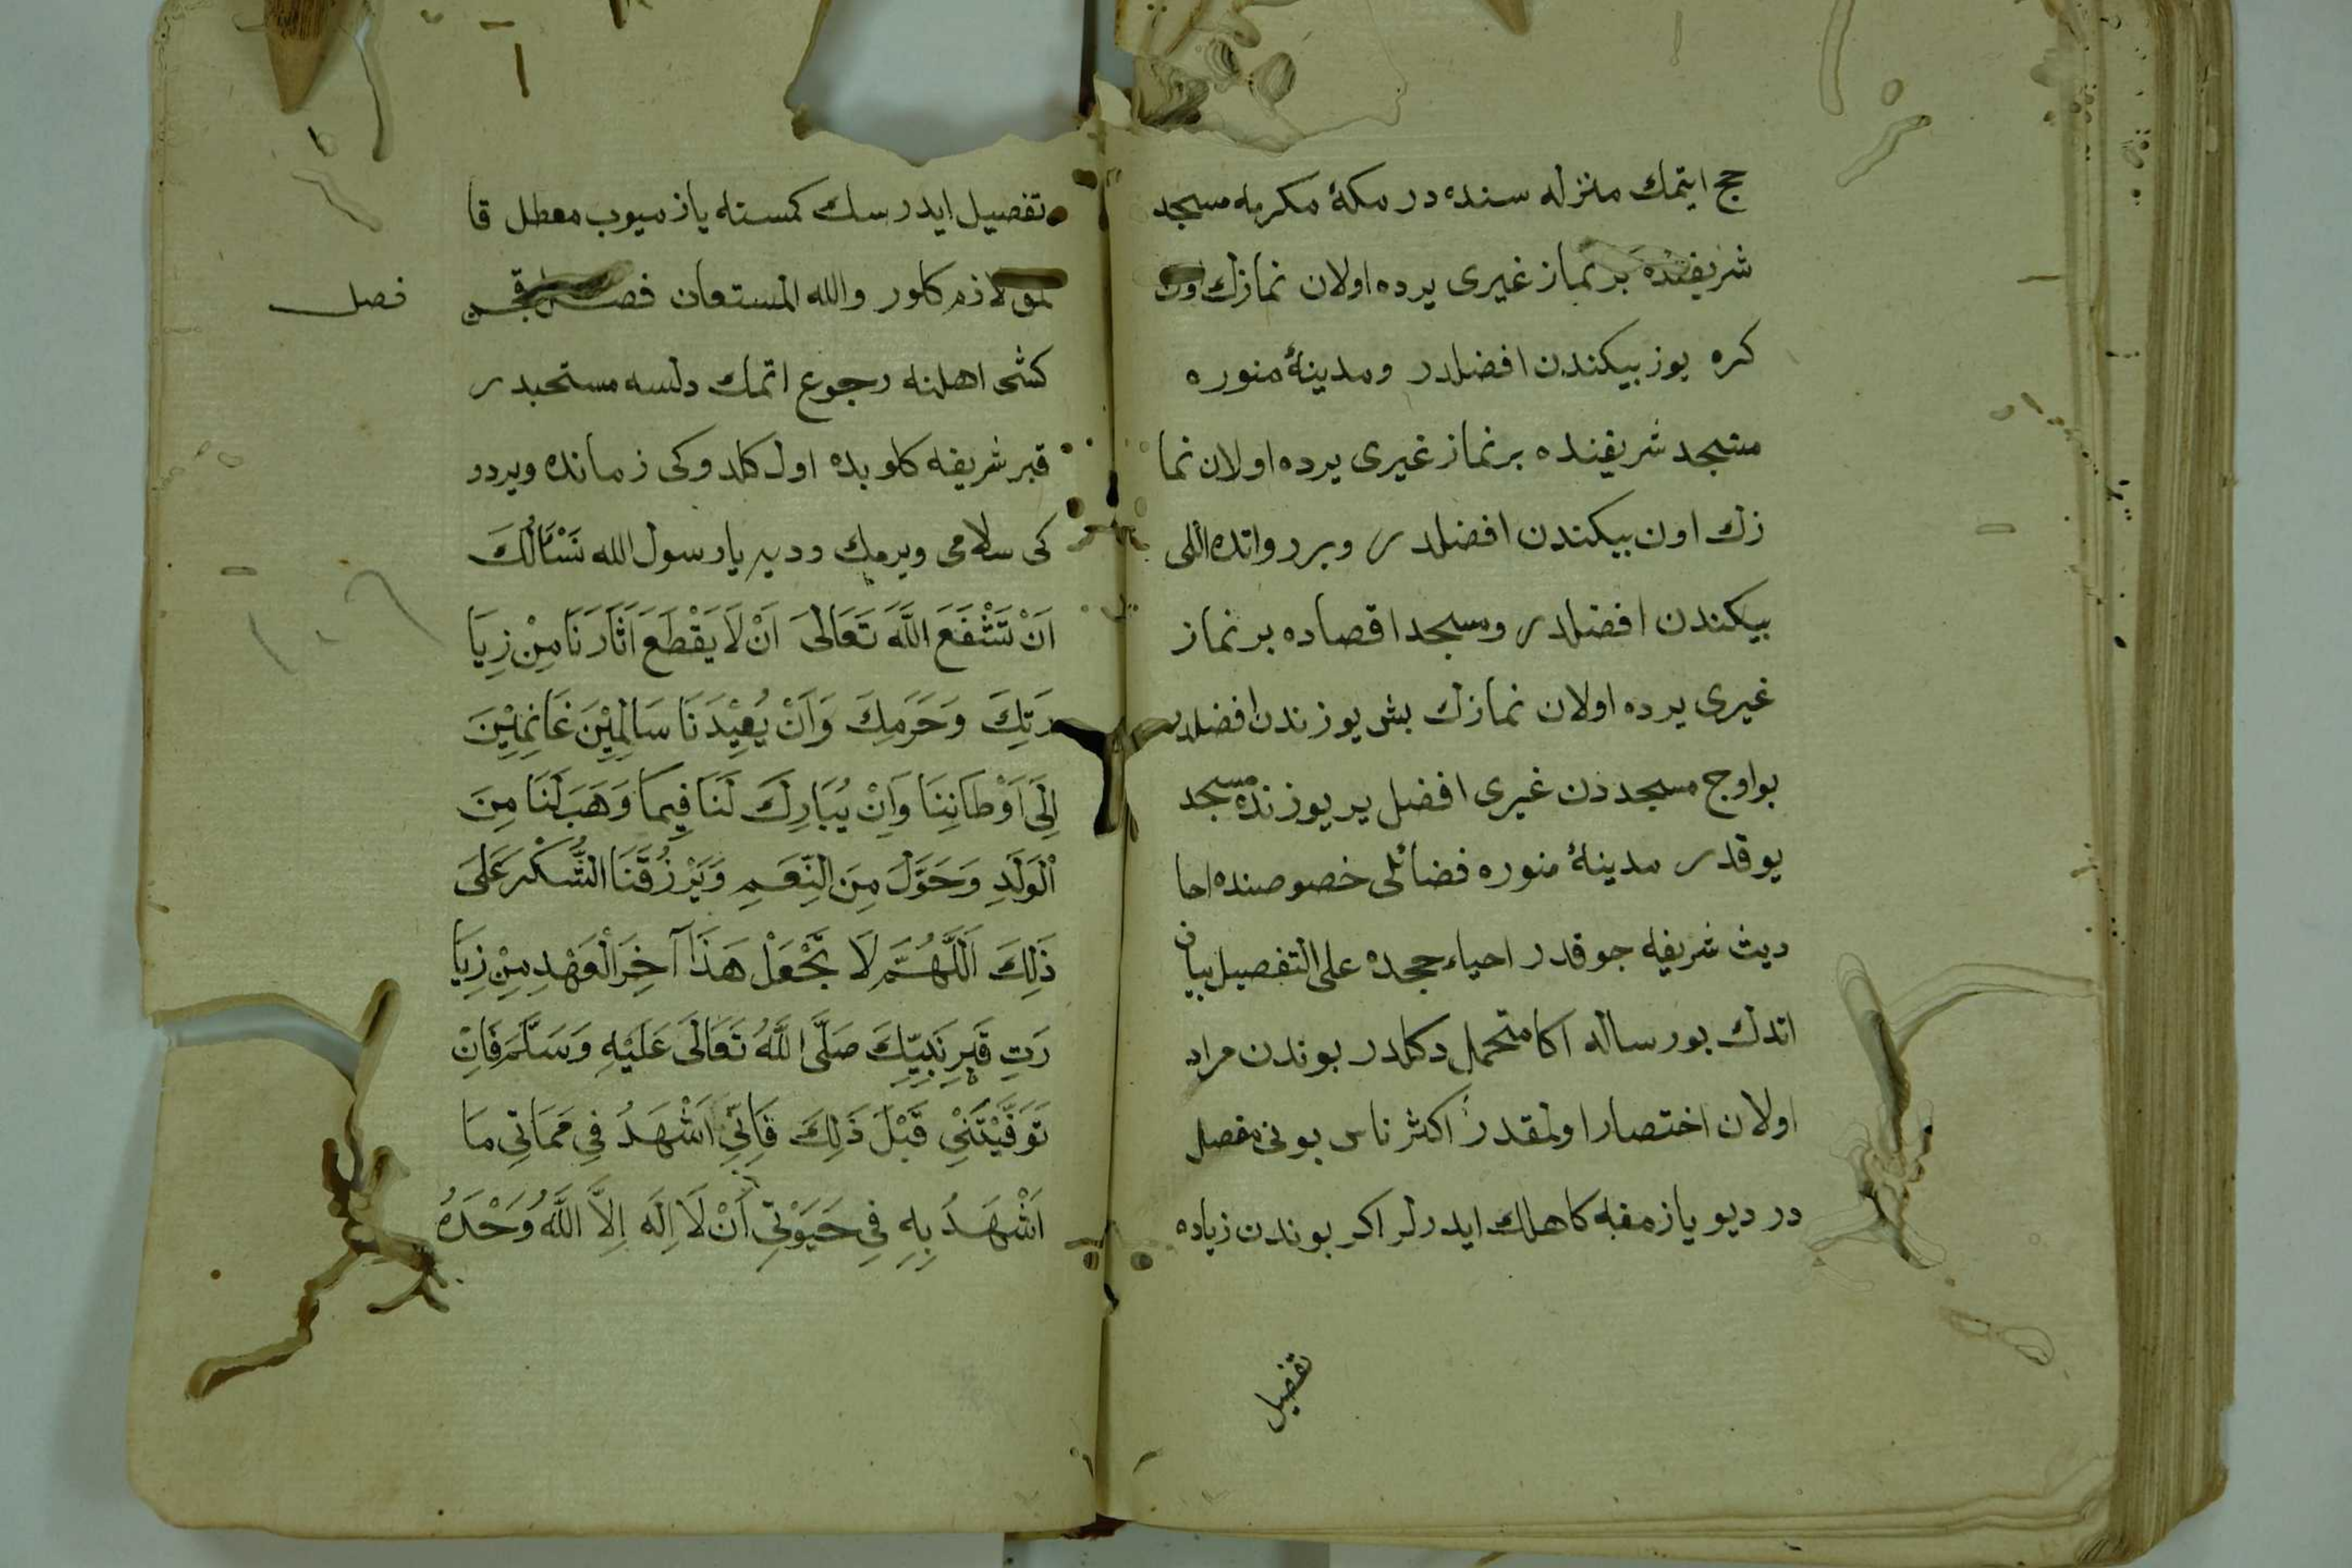 حج ايتمك منزله سنده در مكۀ مكرمه مسجد
شريفنده بر نماز غيرى يرده اولان نمازك اون
كره يوز بيكندن افضلدر ومدينۀ منوره
مسجد شريفنده بر نماز غيرى يرده اولان نما
زك اون بيكندن افضلدر وبر رواتده اللى
بيكندن افضلدر ومسجد اقصاده بر نماز
غيرى يرده اولان نمازك بش يوزندن افضلدر
بو اوج مسجددن غيرى افضل ير يوزنده مسجد
يوقدر مدينۀ منوره فضائلى خصوصنده احا
ديث شريفه چوقدر احياء حججده على التفصيل بيان
اتدك بو رساله اكا متحمل دكلدر بوندن مراد
اولان اختصار اولمقدر اكثر ناس بونى مفصل
در ديو يازمغه كاهلك ايدرلر اكر بوندن زياده
تفصيل
تفصيل ايدرسك كمسنه يازميوب معطل قا
لمق لازم كلور والله المستعان فصل قچن
فصل
كشى اهلنه رجوع اتمك دلسه مستحبدر
قبر شريفه كلوبده اول كلدوكى زمانده ويردو
كى سلامى ويرمك وديه يا رسول الله نَسْأَلُكَ
اَنْ تَشْفَعَ اللَّهَ تَعَالَى اَنْ لَا يَقْطَعَ اٰثَارَنَا مِنْ زِيَا
رَتِكَ وَحَرَمِكَ وَاَنْ يُعِيْدَنَا سَالِمِيْنَ غَانِمِيْنَ
اِلَى اَوْطَانِنَا وَاَنْ يُبَارِكَ لَنَا فِيمَا وَهَبَ لَنَا مِنَ
الْوَلَدِ وَحَوَّلَ مِنَ النِّعَمِ وَيَرْزُقَنَا الشُّكْرَ عَلَى
ذَلِكَ اَللَّهُمَّ لَا تَجْعَلْ هَذَا آخِرَ الْعَهْدِ مِنْ زِيَا
رَتِ قَبْرِ نَبِيِّكَ صَلَّى اللَّهُ تَعَالَى عَلَيْهِ وَسَلَّمَ فَاِنْ
تَوَفَّيْتَنِي قَبْلَ ذَلِكَ فَاِنِّي اَشْهَدُ فِي مَمَاتِي مَا
اَشْهَدُ بِهِ فِي حَيَوٰتِي اَنْ لَا اِلَهَ اِلَّا اللَّهُ وَحْدَهُ